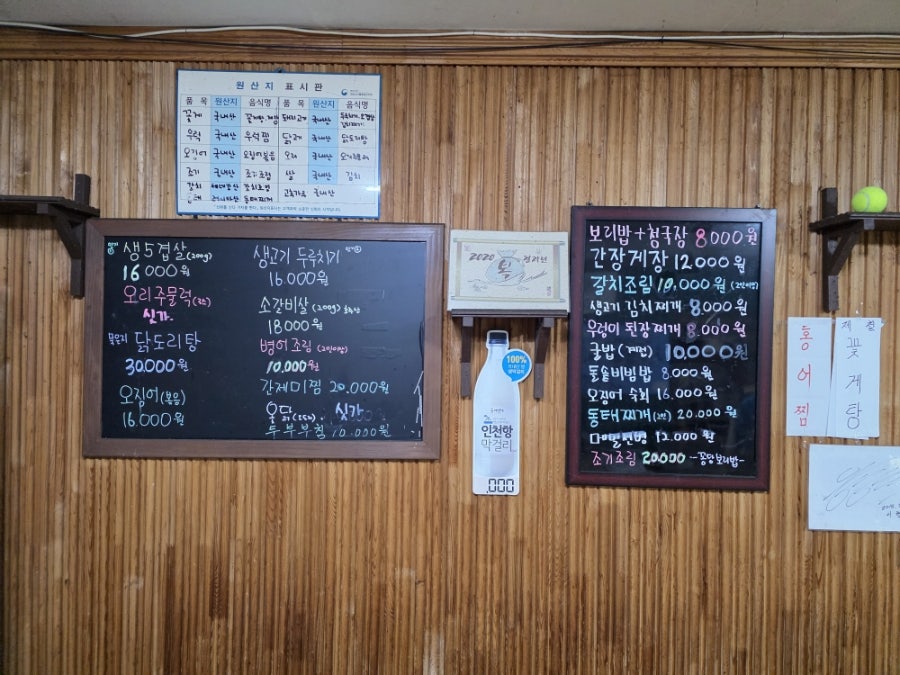 원산지 표시판
품 목 원산지 음식명 품 목 원산지 음식명
꽃게 국내산 돼지고기 국내산
우럭 국내산 우럭찜 닭고기 국내산 닭도리탕
오징어 국내산 오징어볶음 오리 국내산 오리주물럭
조기 국내산 조기조림 쌀 국내산 김치
갈치 갈치조림 고춧가루 국내산
동태 동태찌개
생5겹살(200g)
16000원
오리주물럭
싯가
닭도리탕
30.000원
오징어(볶음)
16.000원
생고기 두루치기
16.000원
소갈비살(200g)
18000원
병어조림(2인이상)
10.000원
간재미찜 20.000원
싯가
두부부침 10.000원
2020
복
100%
인천항
막걸리
,000
보리밥+청국장 8000원
간장게장 12.000원
갈치조림 10,000원(2인이상)
생고기 김치찌개 8.000원
우렁이 된장찌개 8.000원
굴밥(계절) 10.000원
돌솥비빔밥 8.000원
오징어 숙회 16.000원
동태찌개 20.000원
12.000원
조기조림 20.000 -퐁당보리밥-
홍어찜
제철
꽃게탕